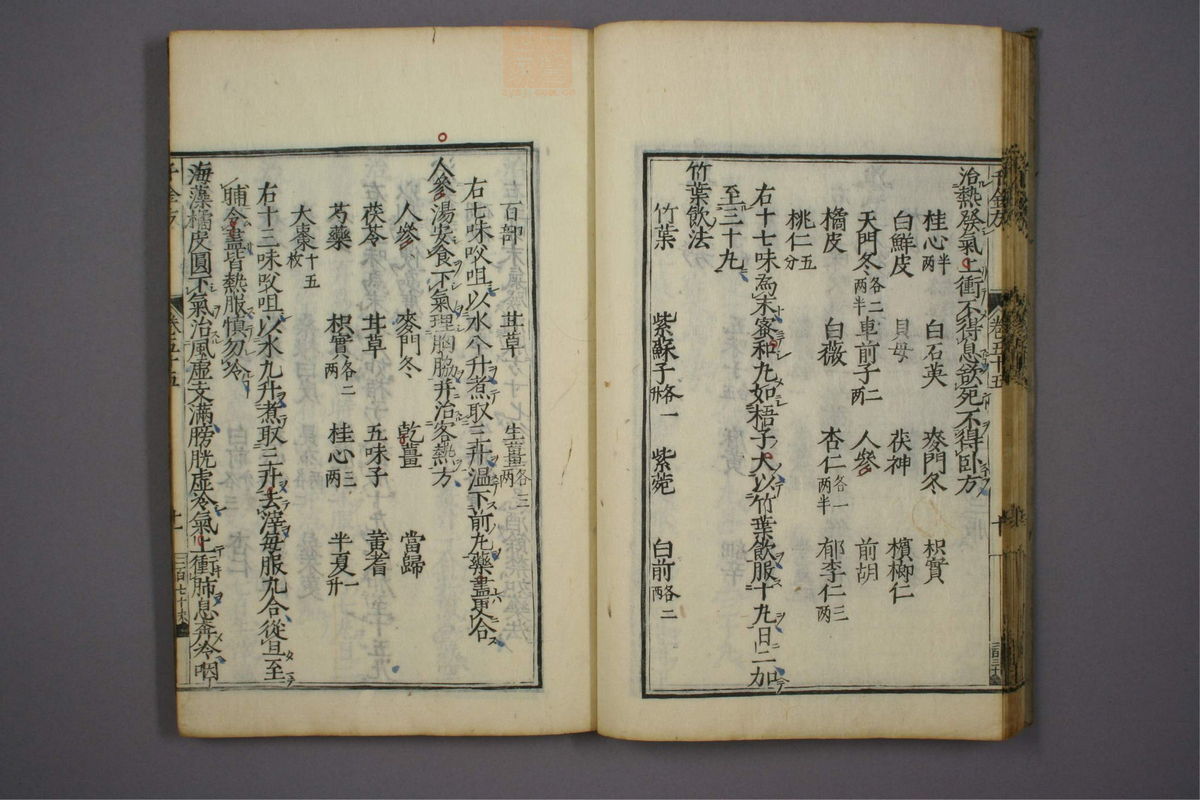 治熱發氣上衝不得息欲死不得卧方
桂心半两 白石英 麥門冬 枳實
白鮮皮 貝母 茯神 檳榔仁
天門冬各二两半 車前子二两 人參 前胡
橘皮 白薇 杏仁各一两半 郁李仁三两
桃仁五分
右十七味爲末蜜和丸如梧子大以竹葉飲服十丸日二加
至三十丸
竹葉飲法
竹葉 紫蘇子各一升 紫菀 白前各二两
百部 甘草 生薑各三两
右七味㕮咀以水八升煮取三升温下前丸藥盡更合
人參湯安食下氣理胸脇并治客熱方
人參 麥門冬 乾薑 當歸
茯苓 甘草 五味子 黃耆
芍藥 枳實各二两 桂心三两 半夏一升
大棗十五枚
右十三味㕮咀以水九升煮取三升去滓每服九合從旦至
晡令盡皆熱服慎勿冷
海藻橘皮圓下氣治風虛支滿膀胱虛冷氣上衝肺息奔令咽